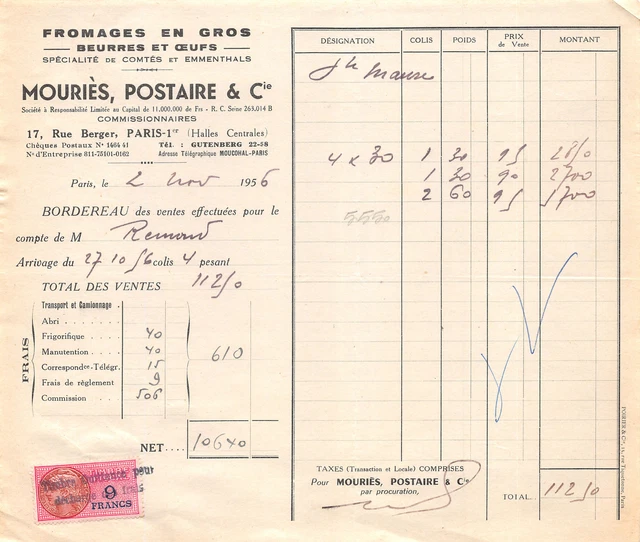 FROMAGES EN GROS
BEURRES ET ŒUFS
SPÉCIALITÉ DE COMTÉS ET EMMENTHALS
MOURIÈS, POSTAIRE & Cie
Société à Responsabilité Limitée au Capital de 11.000.000 de Frs - R. C. Seine 263.014 B
COMMISSIONNAIRES
17, Rue Berger, PARIS-1er (Halles Centrales)
Chèques Postaux N° 1464 41 Tél. : GUTENBERG 22-58
N° d'Entreprise 811-75101-0162 Adresse Télégraphique MOUCHAL-PARIS
Paris, le 2 Nov 1956
BORDEREAU des ventes effectuées pour le
compte de M Remond
Arrivage du 27 10 56 colis 4 pesant
TOTAL DES VENTES 11250
FRAIS
Transport et Camionnage
Abri
Frigorifique 40
Manutention 40
610
Correspondce-Télégr. 15
Frais de règlement 9
Commission 506
NET 10640
Timbre quittance pour
9
FRANCS
DÉSIGNATION COLIS POIDS PRIX de Vente MONTANT
4 x 30 1 30 95 2850
1 30 90 2700
2 60 95 5700
5550
TAXES (Transaction et Locale) COMPRISES
Pour MOURIÈS, POSTAIRE & Cie
par procuration,
TOTAL 11250